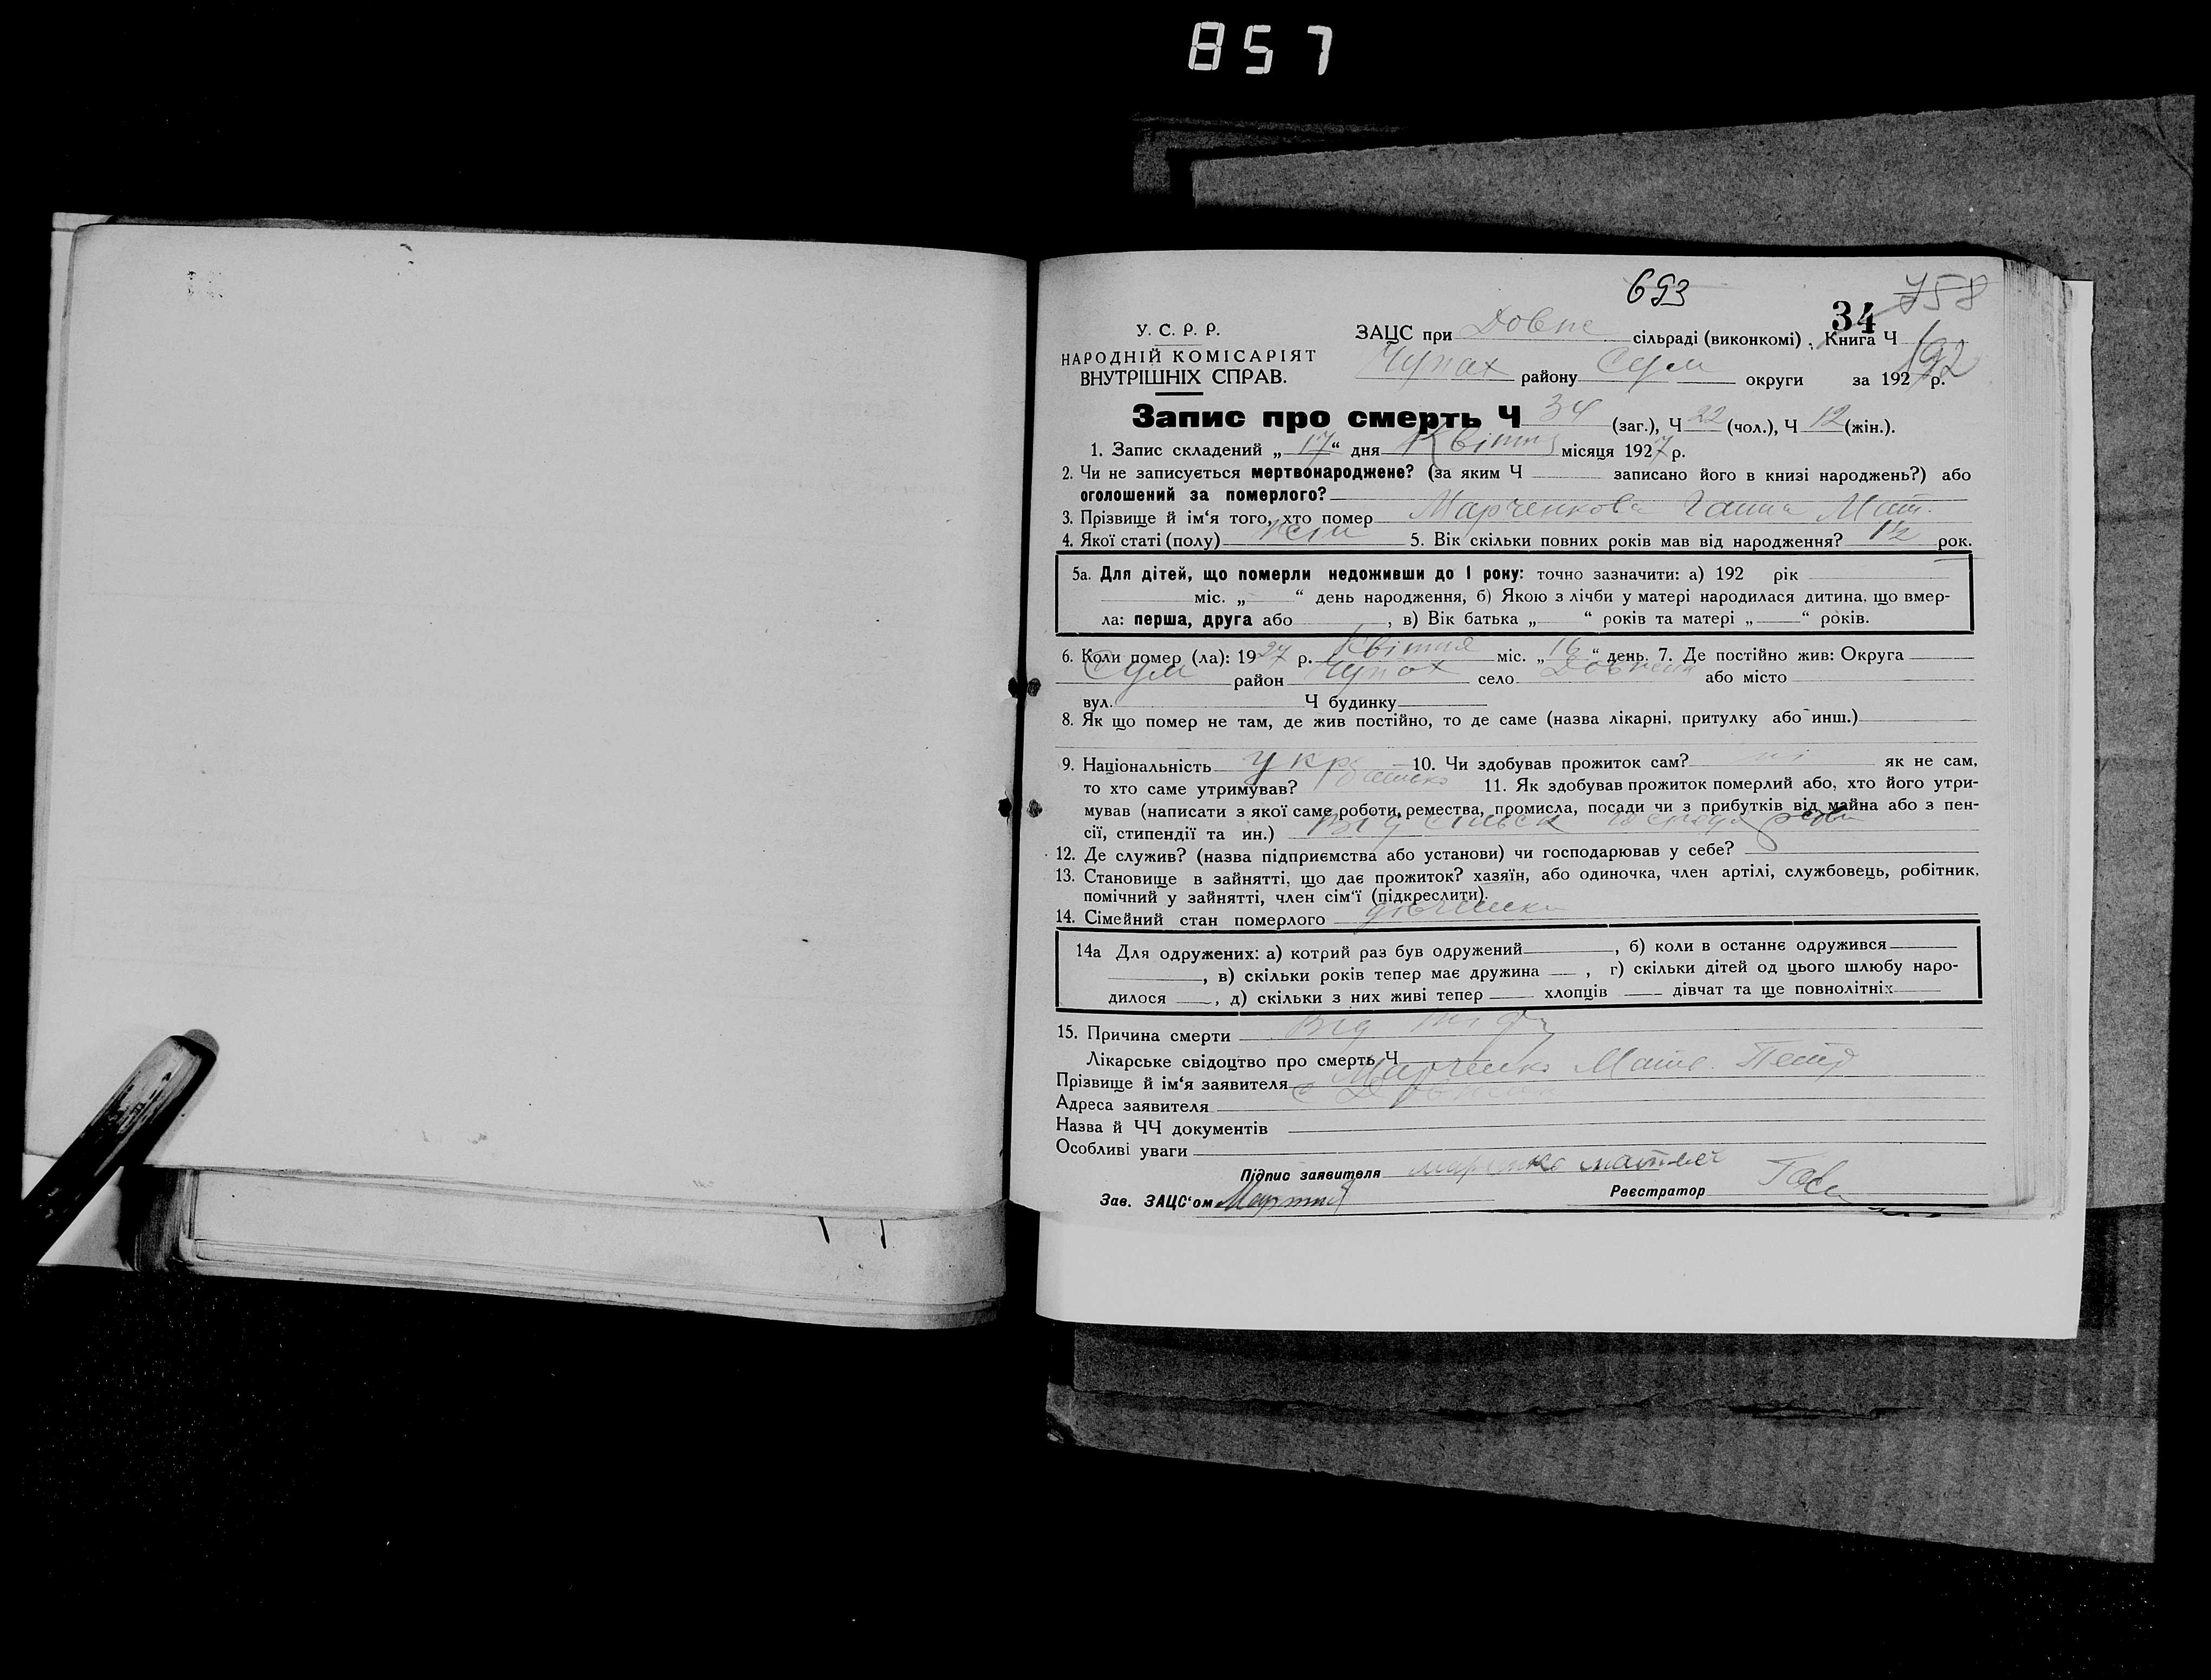 857
693
758
34
У. С. Р. Р.
НАРОДНІЙ КОМІСАРІЯТ
ВНУТРІШНІХ СПРАВ.
ЗАЦС при Довне сільраді (виконкомі) , Книга Ч
Чупах району Сум округи за 1927 р.
192
Запис про смерть Ч 34 (заг.), Ч 22 (чол.), Ч 12 (жін.).
1. Запис складений „ 17 “ дня Квітня місяця 1927 р.
2. Чи не записується мертвонароджене? (за яким Ч записано його в книзі народжень?) або
оголошений за померлого?
3. Прізвище й ім‘я того, хто помер Марченкова Ганна Мат.
4. Якої статі (полу) жін 5. Вік скільки повних років мав від народження? 1½ рок.
5а. Для дітей, що померли недоживши до 1 року: точно зазначити: а) 192 рік
міс. „ “ день народження, б) Якою з лічби у матері народилася дитина, що вмер-
ла: перша, друга або , в) Вік батька „ “ років та матері „ “ років.
6. Коли помер (ла): 1927 р. Квітня міс. „ 16 “ день. 7. Де постійно жив: Округа
Сум район Чупах село або місто
вул. Ч будинку
8. Як що помер не там, де жив постійно, то де саме (назва лікарні, притулку або инш.)
9. Національність укр 10. Чи здобував прожиток сам? ні як не сам,
то хто саме утримував? батько 11. Як здобував прожиток померлий або, хто його утри-
мував (написати з якої саме роботи, ремества, промисла, посади чи з прибутків від майна або з пен-
сії, стипендії та ин.) Від сільськ господарства
12. Де служив? (назва підприємства або установи) чи господарював у себе?
13. Становище в зайнятті, що дає прожиток? хазяїн, або одиночка, член артілі, службовець, робітник,
помічний у зайнятті, член сім‘ї (підкреслити).
14. Сімейний стан померлого дівчинка
14а Для одружених: а) котрий раз був одружений , б) коли в останнє одружився
, в) скільки років тепер має дружина , г) скільки дітей од цього шлюбу наро-
дилося , д) скільки з них живі тепер хлопців дівчат та ще повнолітніх
15. Причина смерти Від
Лікарське свідоцтво про смерть Ч
Прізвище й ім‘я заявителя Марченко Матв. Петр
Адреса заявителя с
Назва й ЧЧ документів
Особливі уваги
Підпис заявителя марченко матвей
Зав. ЗАЦС‘ом Реєстратор